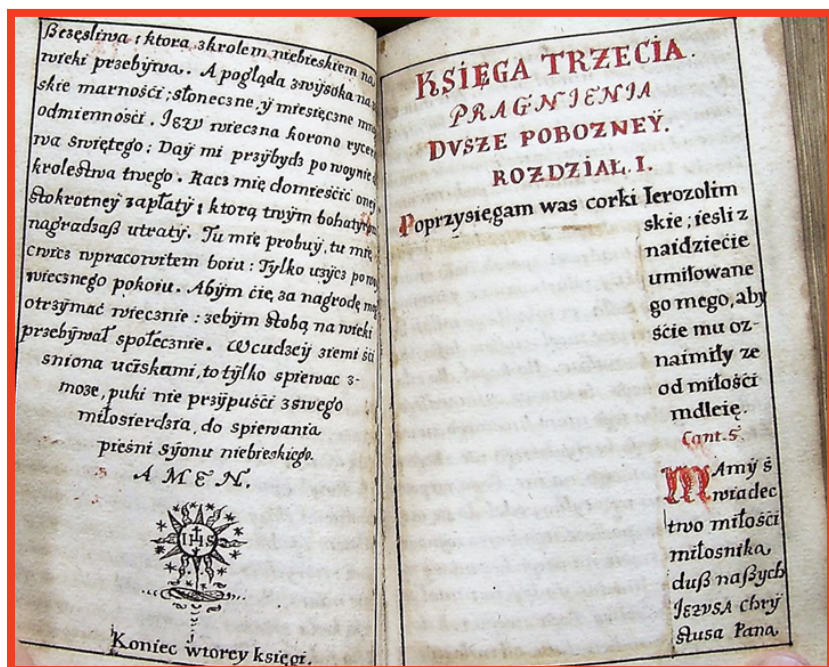 ßczęśliwa; ktora z krolem niebieskiem na
wieki przebÿwa. A pogląda z wÿsoka na
skie marnośći; słoneczne, ÿ mieśięczne
odmiennośći. Jezu wieczna korono
wa świętego: Daÿ mi przÿbydz po woynie
krolestwa twego. Racz mię domieśćić oneÿ
stokrotneÿ zapłatÿ; ktorą twÿm
nagradzaß utratÿ. Tu mię probuÿ, tu mię
cwicz w pracowitem boiu: Tylko użÿcz
wiecznego pokoiu. Abÿm ćię, za nagrodę
otrzÿmać wiecznie: zebÿm stobą, na wieki
przebÿwał społecznie. W cudzeÿ ziemi śći
sniona ućiskami, to tÿlko spiewac z-
moze, puki nie przÿpuśći z swego
miłosierdzia, do spiewania
pieśni sÿonu niebieskiego.
AMEN.
IHS
Koniec wtorey księgi.
KSIĘGA TRZECIA.
PRAGNIENIA
DVSZE POBOZNEŸ.
ROZDZIAŁ. I.
Poprzysięgam was corki Ierozolim
skie; iesli z
naidziećie
umiłowane
go mego, aby
śćie mu oz-
naimiły ze
od miłośći
mdleię.
Cant. 5.
Mamÿ ś
wiadec
two miłośći
miłosnika,
duß naßÿch
Jezusa Chrÿ
stusa Pana